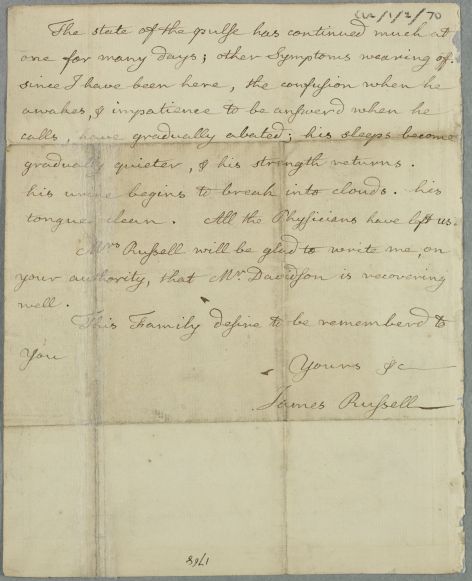 CU2/1/2/70
The state of the pulse has continued much at
one for many days; other Symptoms wearing of.
since I have been here, the confusion when he
awakes, & impatience to be answerd when he
calls, have gradually abated; his sleeps become
gradually quieter, & his strength returns.
his urine begins to break into clouds. his
tongue clean. All the Physicians have left us.
Mrs Russell will be glad to write me, on
your authority, that Mr. Davidson is recovering
well.
This Family desire to be rememberd to
You
Yours &c
James Russell
1768